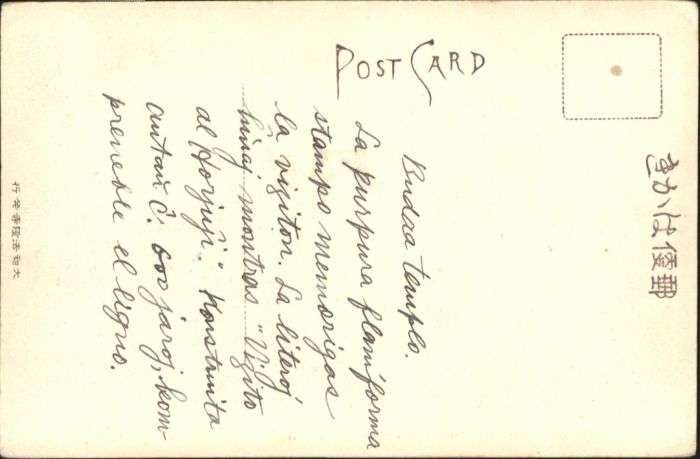 POST CARD
郵便はかき
Budaa templo.
La purpura flamforma
stampo memorigas
la viziton. La literoj
ĥinaj montras "Vizito
al Horjuĵi". Konstruita
antaŭ ĉ. 600 jaroj, kom-
preneble el ligno.
大和法隆寺發行